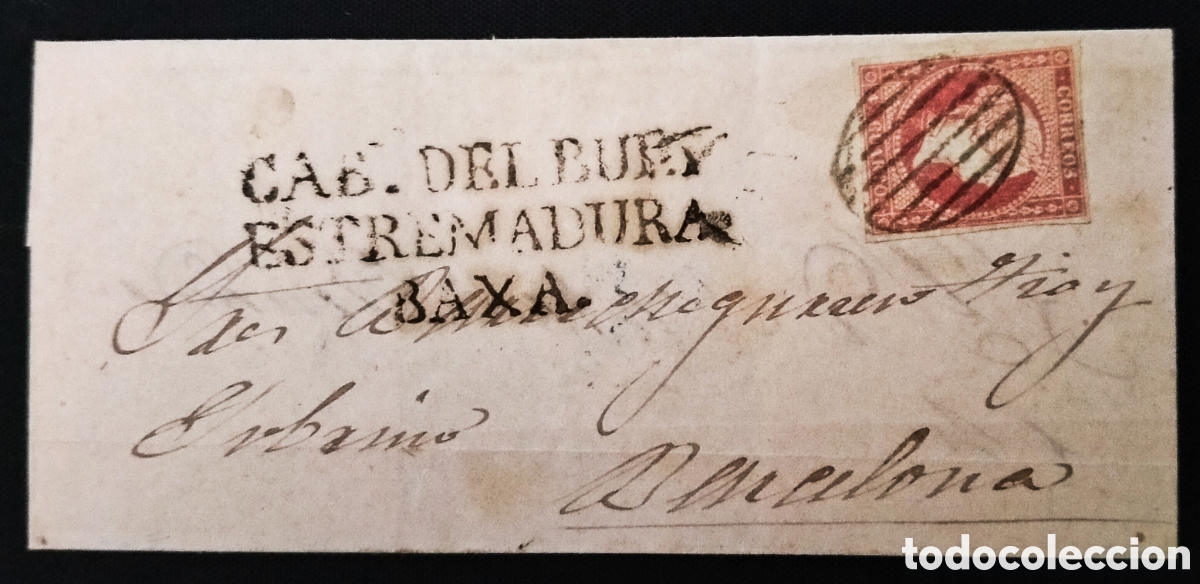 CORREOS
CUARTO
CAB. DEL BUEY
ESTREMADURA
BAXA.
Sres
y
Sobrino
Barcelona
todocoleccion